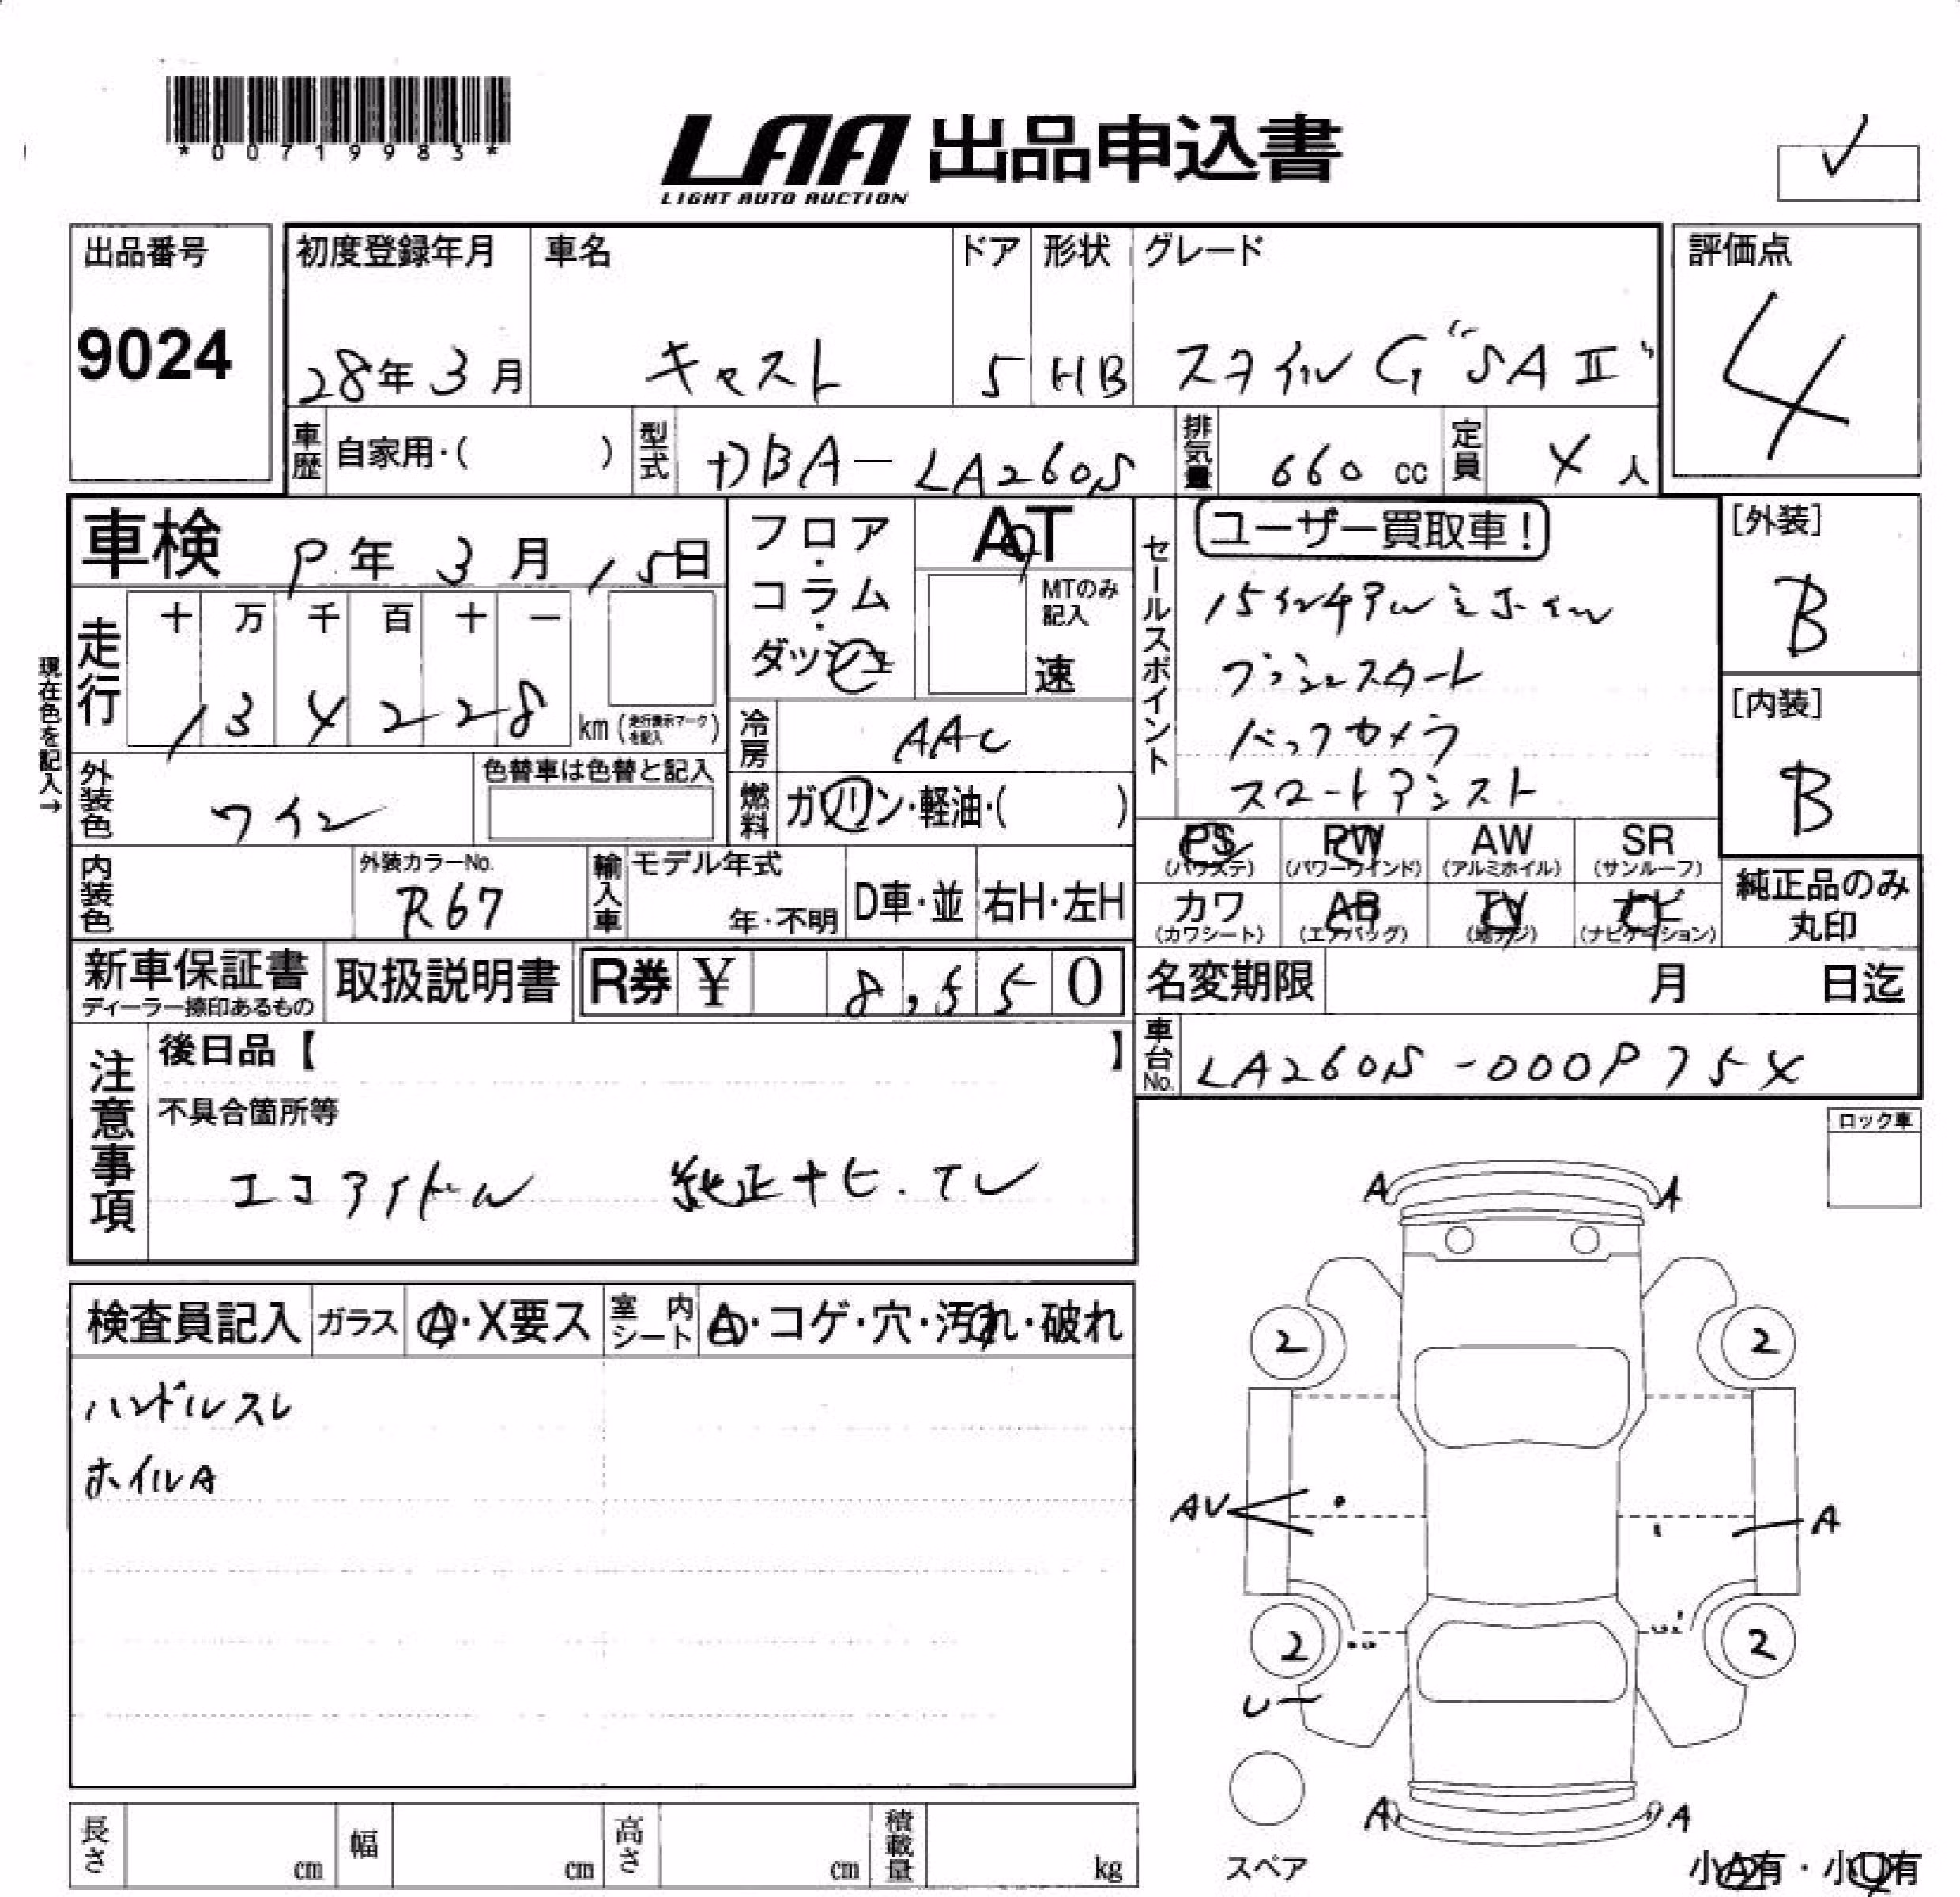 *00719983*
LAA 出品申込書
LIGHT AUTO AUCTION
出品番号
9024
初度登録年月
28年 3月
車名
キャスト
ドア
5
形状
HB
グレード
スタイル G "SA II"
評価点
4
車歴
自家用・( )
型式
DBA-LA260S
排気量
660 cc
定員
4 人
車検 9年 3月 15日
フロア・コラム・ダッシュ
AT
MTのみ記入
速
セールスポイント
ユーザー買取車!
15インチアルミホイル
プッシュスタート
バックカメラ
スマートアシスト
[外装]
B
[内装]
B
現在色を記入→
走行
十 万 千 百 十 一
1 3 4 2 2 8
km (走行表示マークを記入)
冷房
AAC
外装色
ワイン
色替車は色替と記入
燃料
ガソリン・軽油・( )
PS
(パワステ)
PW
(パワーウインド)
AW
(アルミホイル)
SR
(サンルーフ)
内装色
外装カラーNo.
R67
輸入車
モデル年式
年・不明
D車・並
右H・左H
カワ
(カワシート)
AB
(エアバッグ)
TV
(地デジ)
ナビ
(ナビゲーション)
純正品のみ丸印
新車保証書
ディーラー捺印あるもの
取扱説明書
R券 ¥ 8,550
名変期限 月 日迄
車台No.
LA260S-000975X
注意事項
後日品【 】
不具合箇所等
エコアイドル 純正ナビ.TV
ロック車
検査員記入
ガラス
A・X要ス
室内シート
A・コゲ・穴・汚れ・破れ
ハンドルスレ
ホイルA
A A
2 2
AV A
2 2
U
A A
スペア
小A有・小U有
長さ cm
幅 cm
高さ cm
積載量 kg